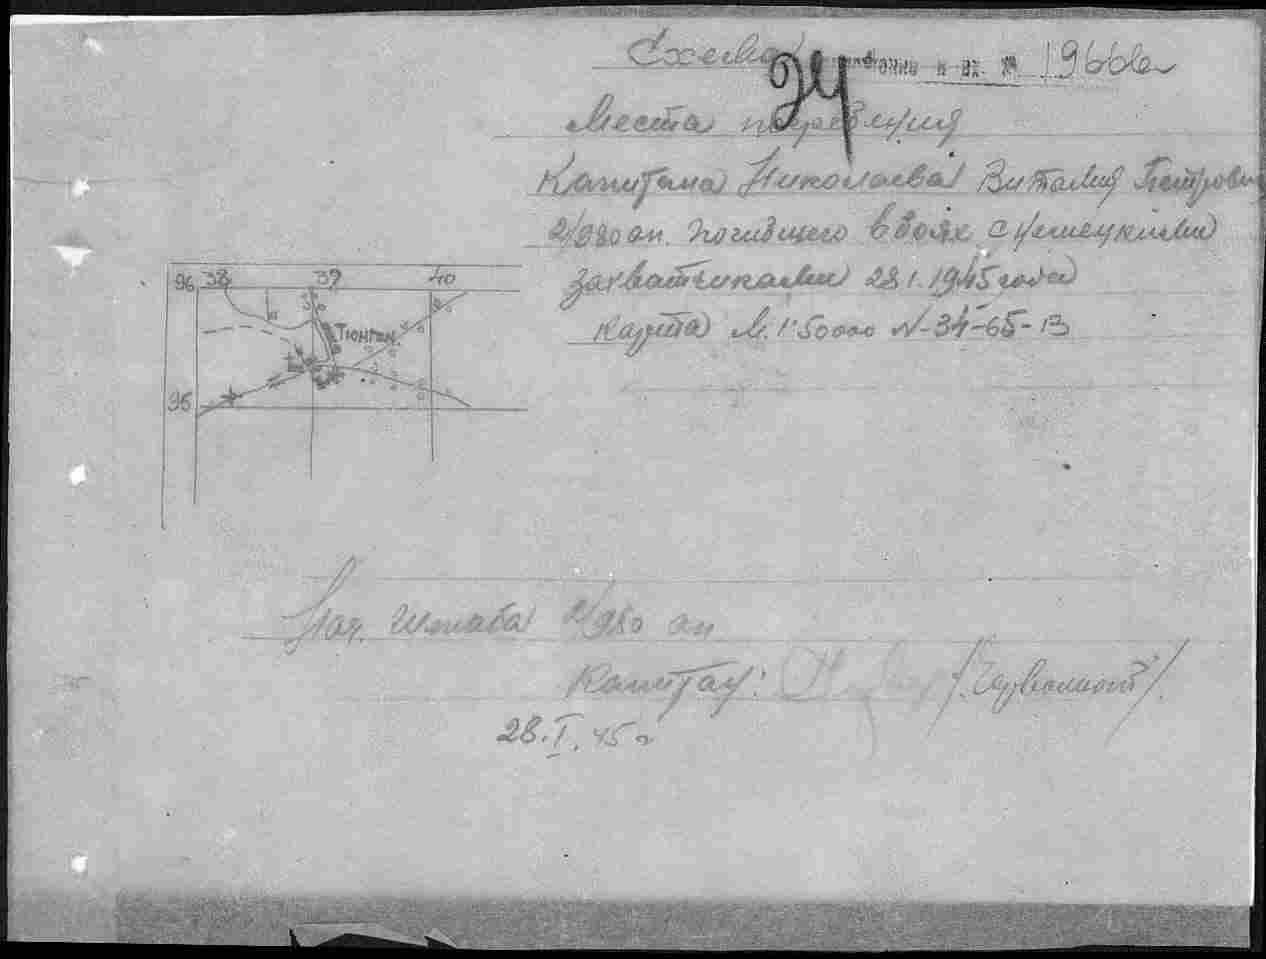 Схема
к вх. № 19666
94
Места погребения
Капитана Николаева Виталия Петрович
2/980 ап. погибшего в боях с немецкими
захватчиками 28.1.1945 года
карта М. 1:50000 N-34-65-В
96 38 39 40
Тюнген.
95
Нач. штаба 2/980 ап
Капитан:
28.I.45 г